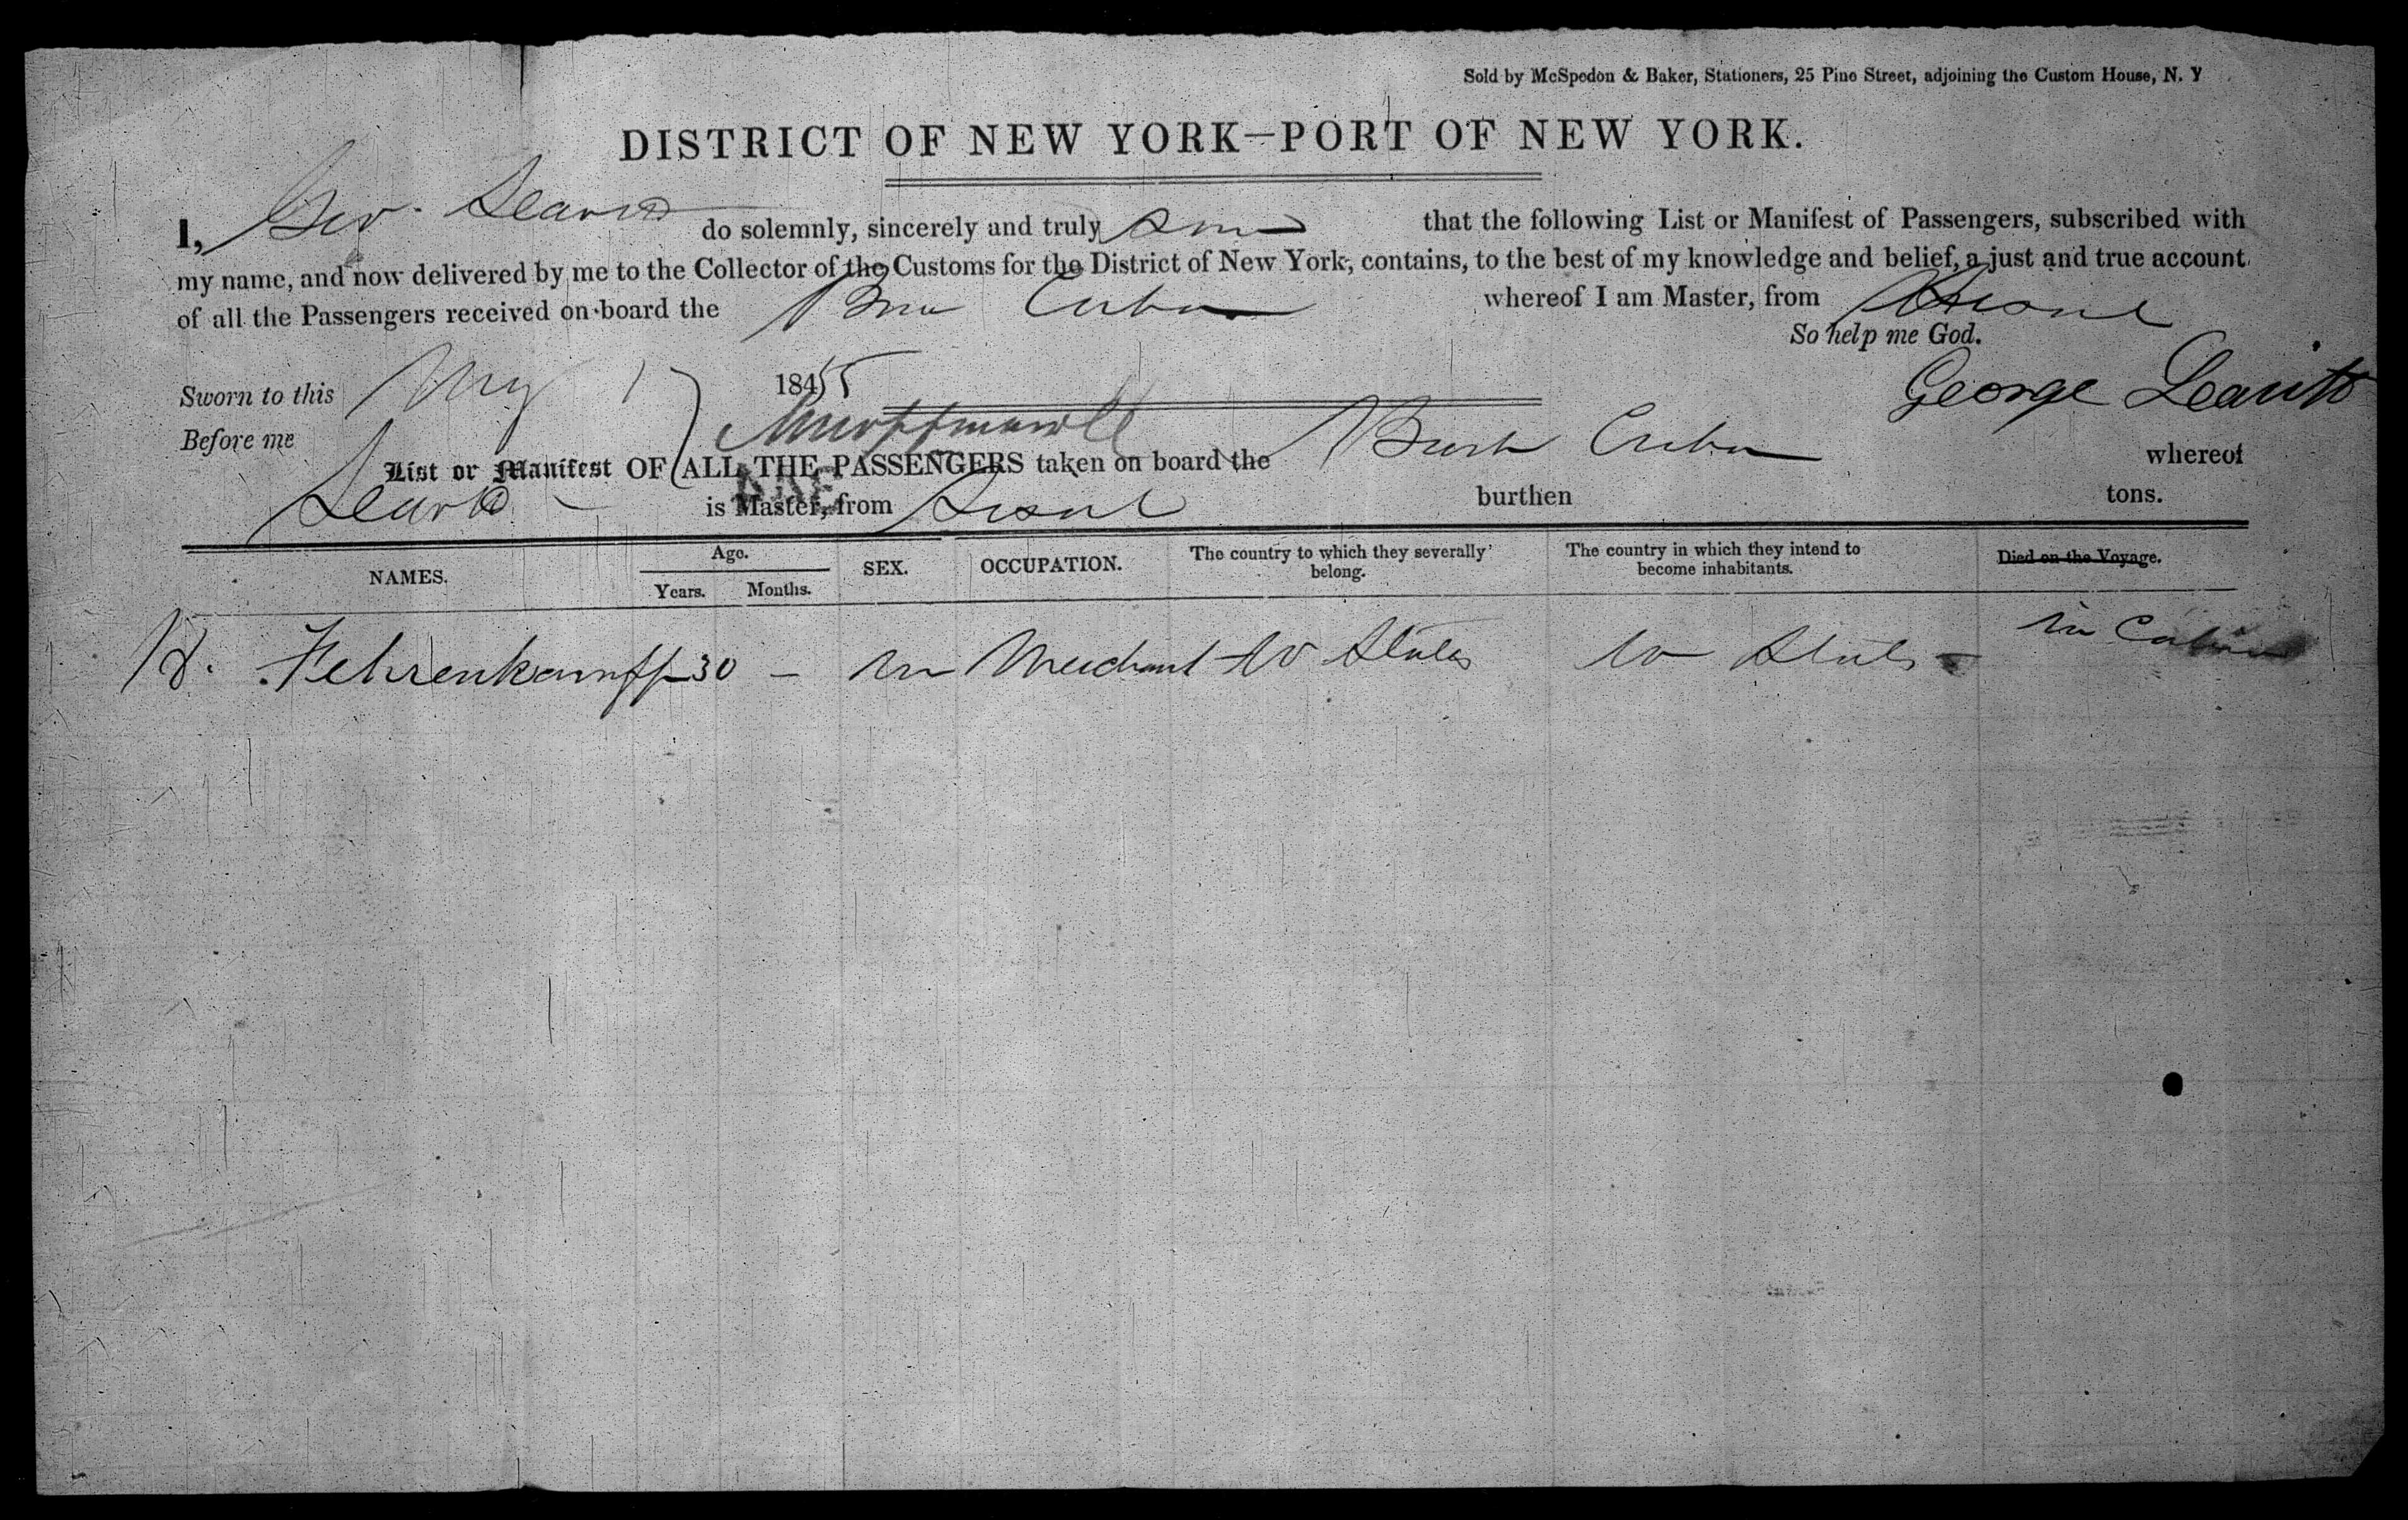 Sold by McSpedon & Baker, Stationers, 25 Pine Street, adjoining the Custom House, N. Y
DISTRICT OF NEW YORK—PORT OF NEW YORK.
I, Geo. do solemnly, sincerely and truly that the following List or Manifest of Passengers, subscribed with
my name, and now delivered by me to the Collector of the Customs for the District of New York, contains, to the best of my knowledge and belief, a just and true account
of all the Passengers received on board the Cuba whereof I am Master, from
So help me God.
Sworn to this 1 1855
George Leavitt
Before me
List or Manifest OF ALL THE PASSENGERS taken on board the Cuba whereof
is Master, from burthen tons.
NAMES. Age. Years. Months. SEX. OCCUPATION. The country to which they severally belong. The country in which they intend to become inhabitants. Died on the Voyage.
H. Fehrenkampff 30 - m Merchant U States U States in Cabin